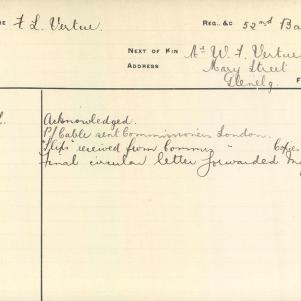 F. L. Vertue. REG., &C 52nd Ba
NEXT OF KIN W. F. Vertue
ADDRESS Mary Street
Glenelg.
Acknowledged.
P/Cable sent Commissioners London.
"Slips" received from Commrs "
Final circular letter forwarded